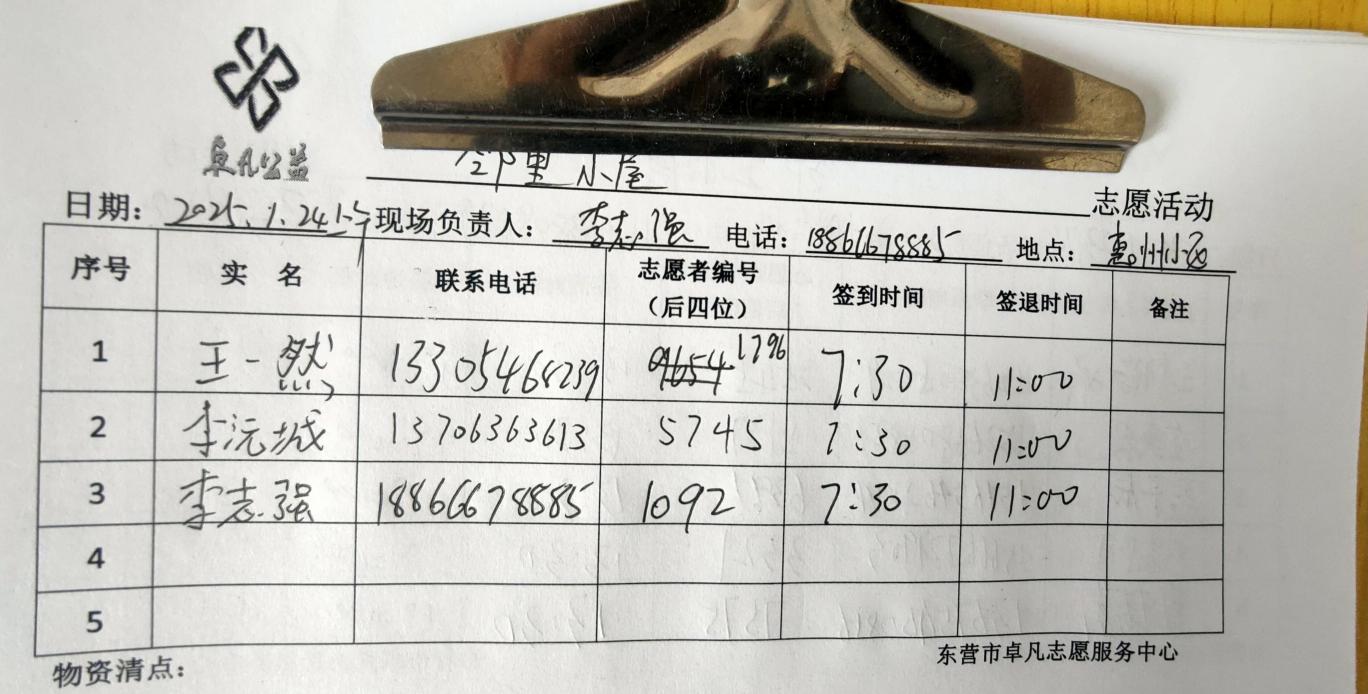 卓凡公益
邻里小屋 志愿活动
日期: 2025.1.24上午 现场负责人: 李志强 电话: 18866678885 地点: 惠州小区
序号 实 名 联系电话 志愿者编号(后四位) 签到时间 签退时间 备注
1 王一然 13305468239 1796 7:30 11:00
2 李沅城 13706363613 5745 7:30 11:00
3 李志强 18866678885 1092 7:30 11:00
4
5
物资清点:
东营市卓凡志愿服务中心